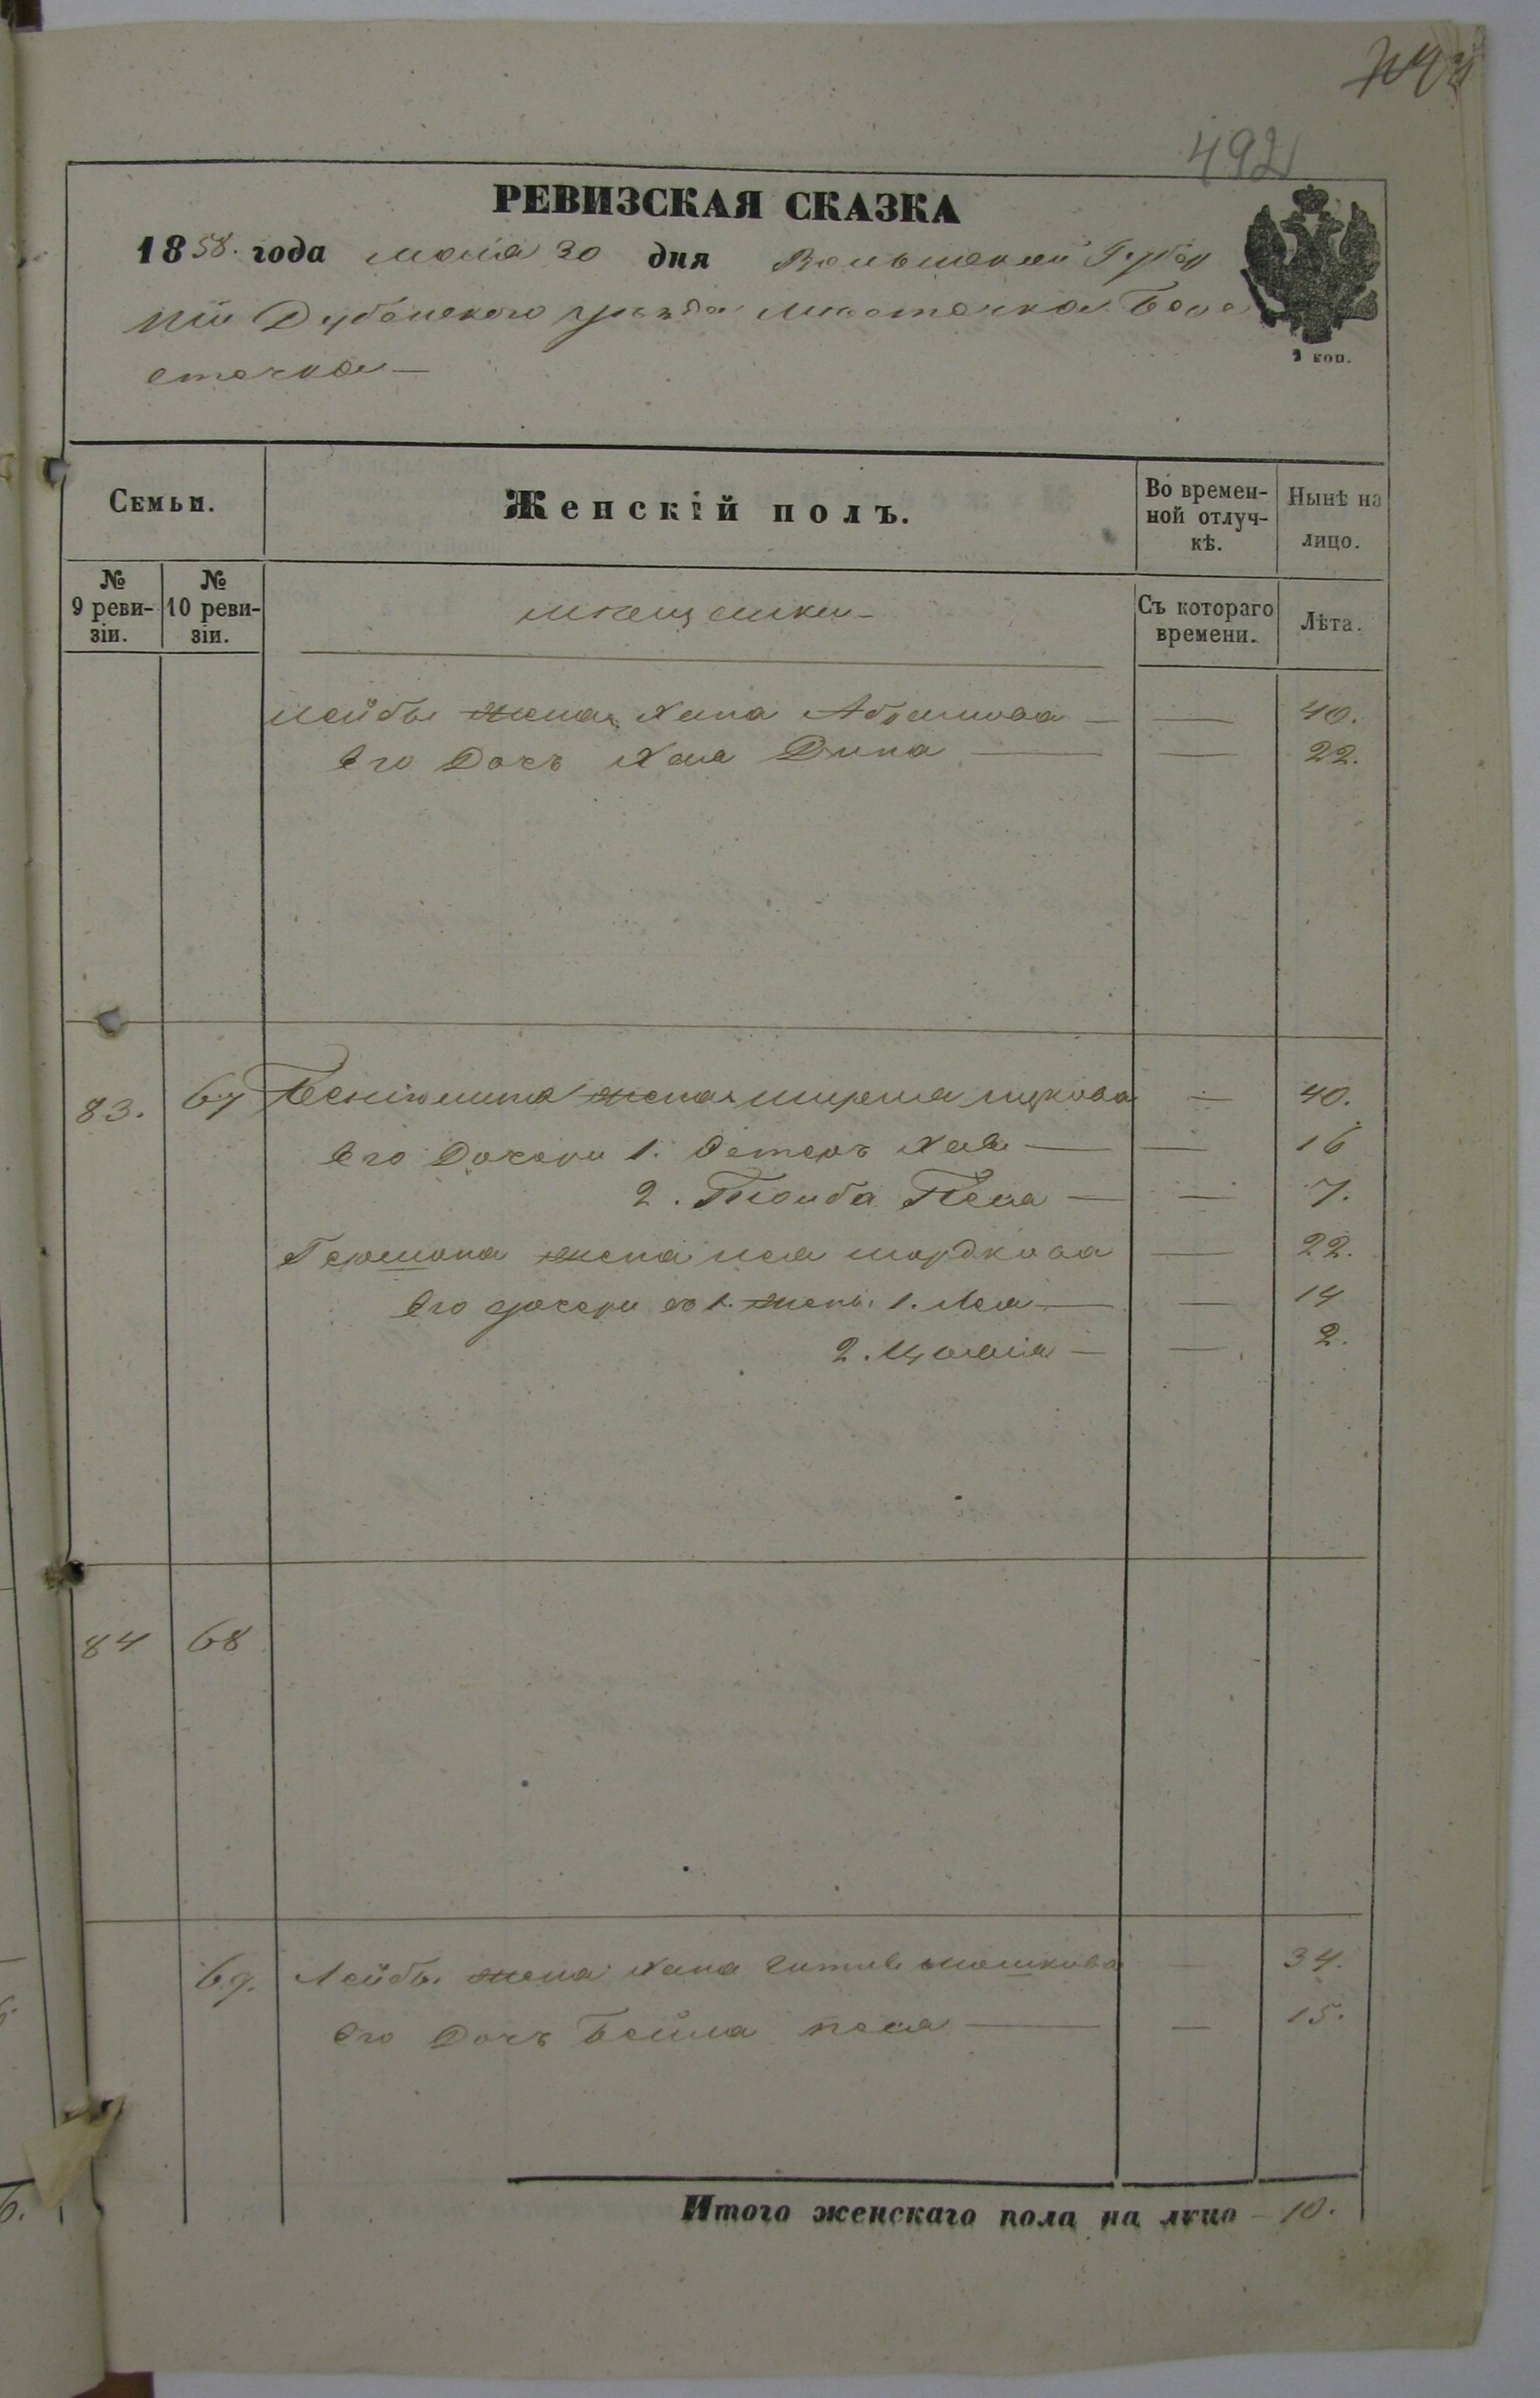 492
РЕВИЗСКАЯ СКАЗКА
1858. года мая 30 дня Волынской Губер
ніи Дубенского уѣзда мѣстечка Бере
стечка
2 коп.
Семьи.
Женскій полъ.
Во времен-
ной отлуч-
кѣ.
Нынѣ на
лицо.
№
9 реви-
зіи.
№
10 реви-
зіи.
мѣщанки
Съ котораго
времени.
Лѣта.
Лейбы жена Хана Абрамова — — 40.
Его Дочь Хая Дина — — 22.
83. 67 Беніомина жена — 40.
Его Дочери 1. Эстеръ Хая — — 16
2. Тйойба Песя — — 7.
Гершона жена Лея Мордкова — 22.
Его дочери съ 1. жены 1. Лея — — 14
2. — — 2.
84 68
69. Лейбы жена Хана Гитля Мошкова — 34.
Его Дочь Бейла Песя — — 15.
Итого женскаго пола на лицо – 10.